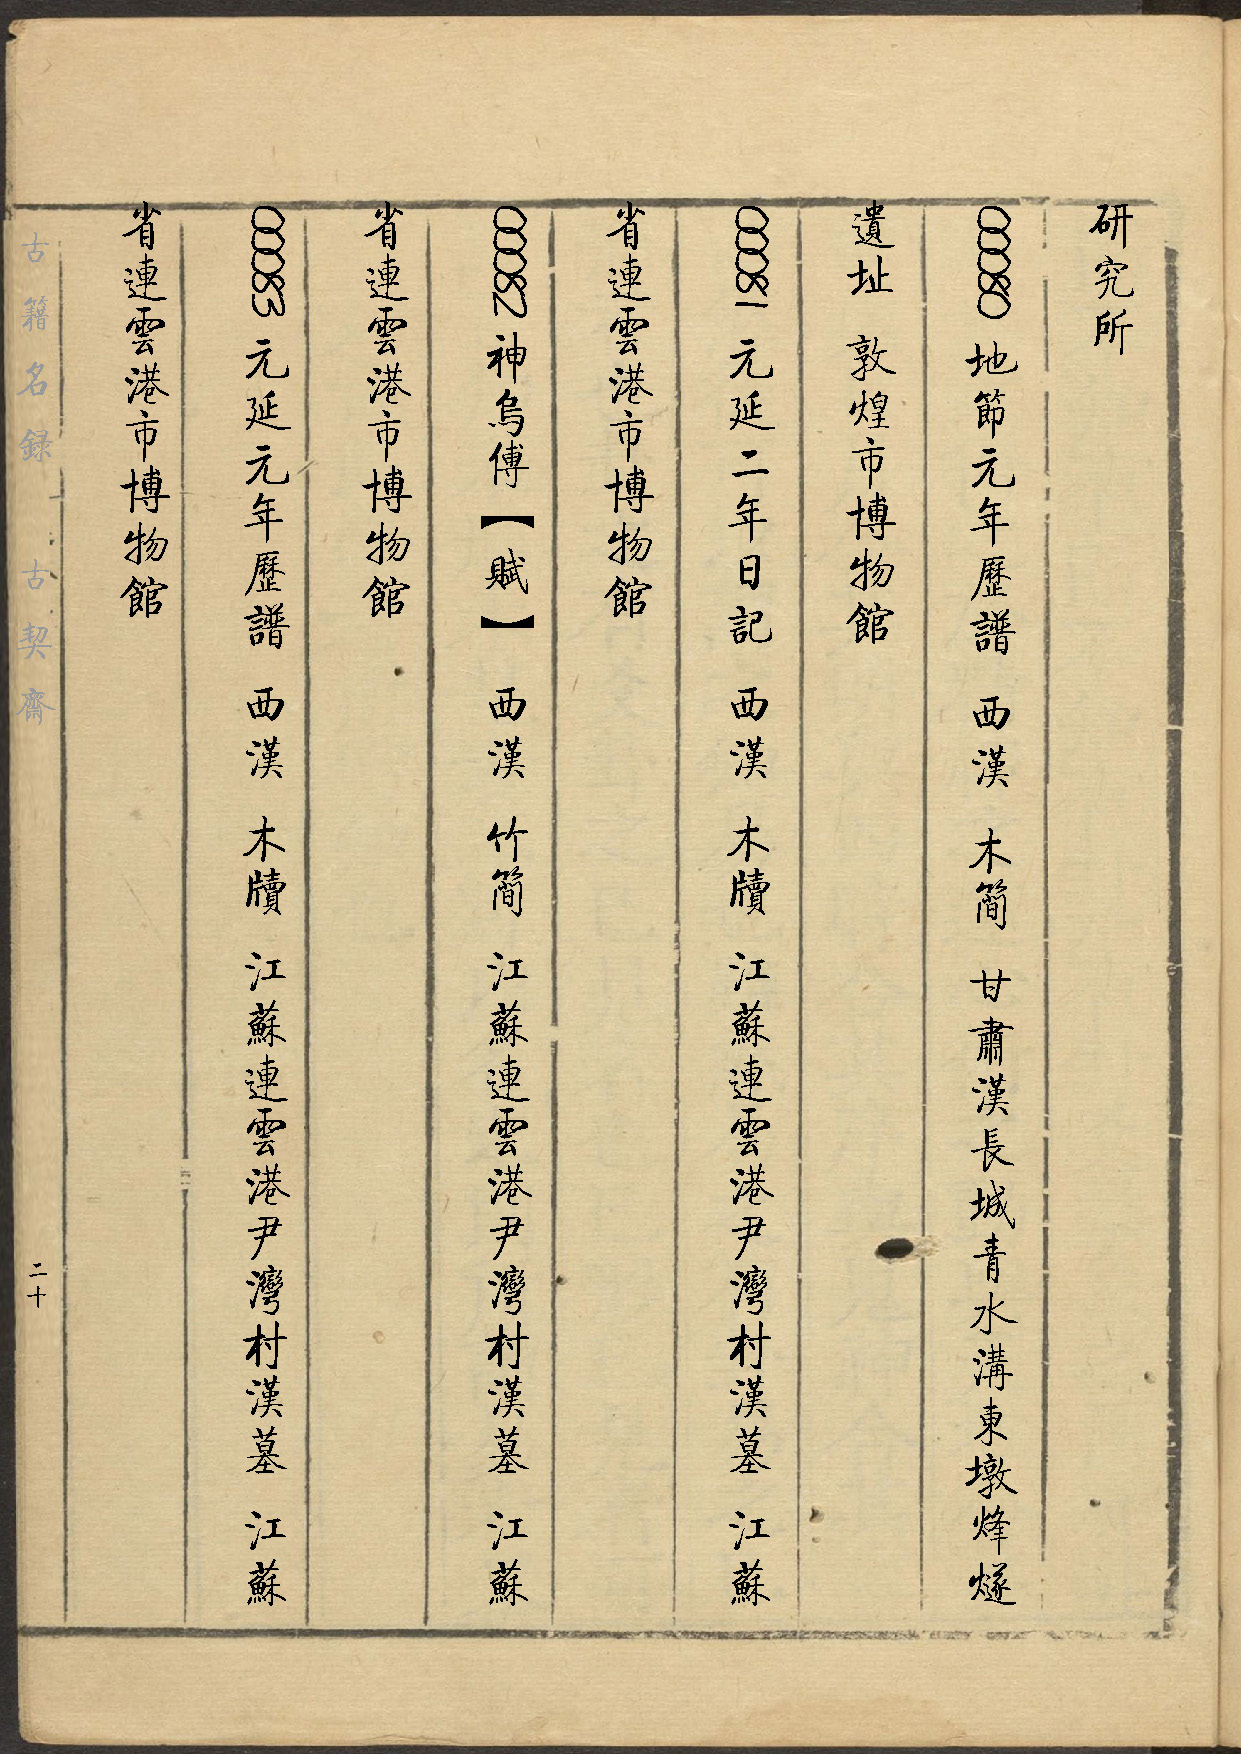 研究所
00080 地節元年歷譜 西漢 木簡 甘肅漢長城青水溝東墩烽燧
遺址 敦煌市博物館
00081 元延二年日記 西漢 木牘 江蘇連雲港尹灣村漢墓 江蘇
省連雲港市博物館
00082 神烏傅【賦】 西漢 竹簡 江蘇連雲港尹灣村漢墓 江蘇
省連雲港市博物館
00083 元延元年歷譜 西漢 木牘 江蘇連雲港尹灣村漢墓 江蘇
省連雲港市博物館
古籍名録 古契齋
二十